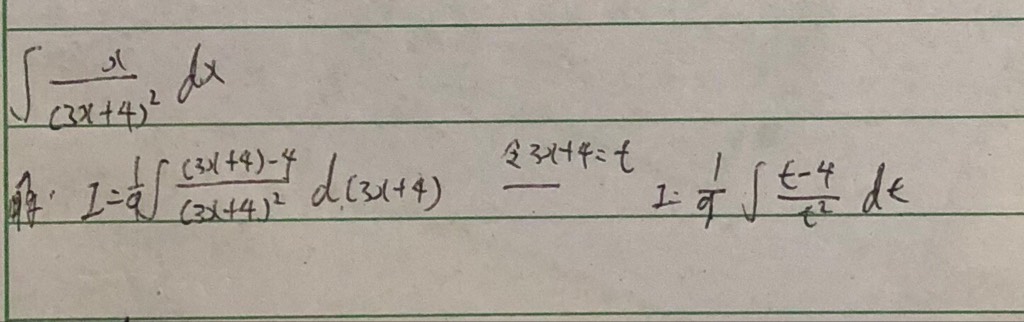 ∫ x/(3x+4)² dx
解: I=1/9∫ (3x+4)-4/(3x+4)² d(3x+4) 令3x+4=t I=1/9 ∫ t-4/t² dt